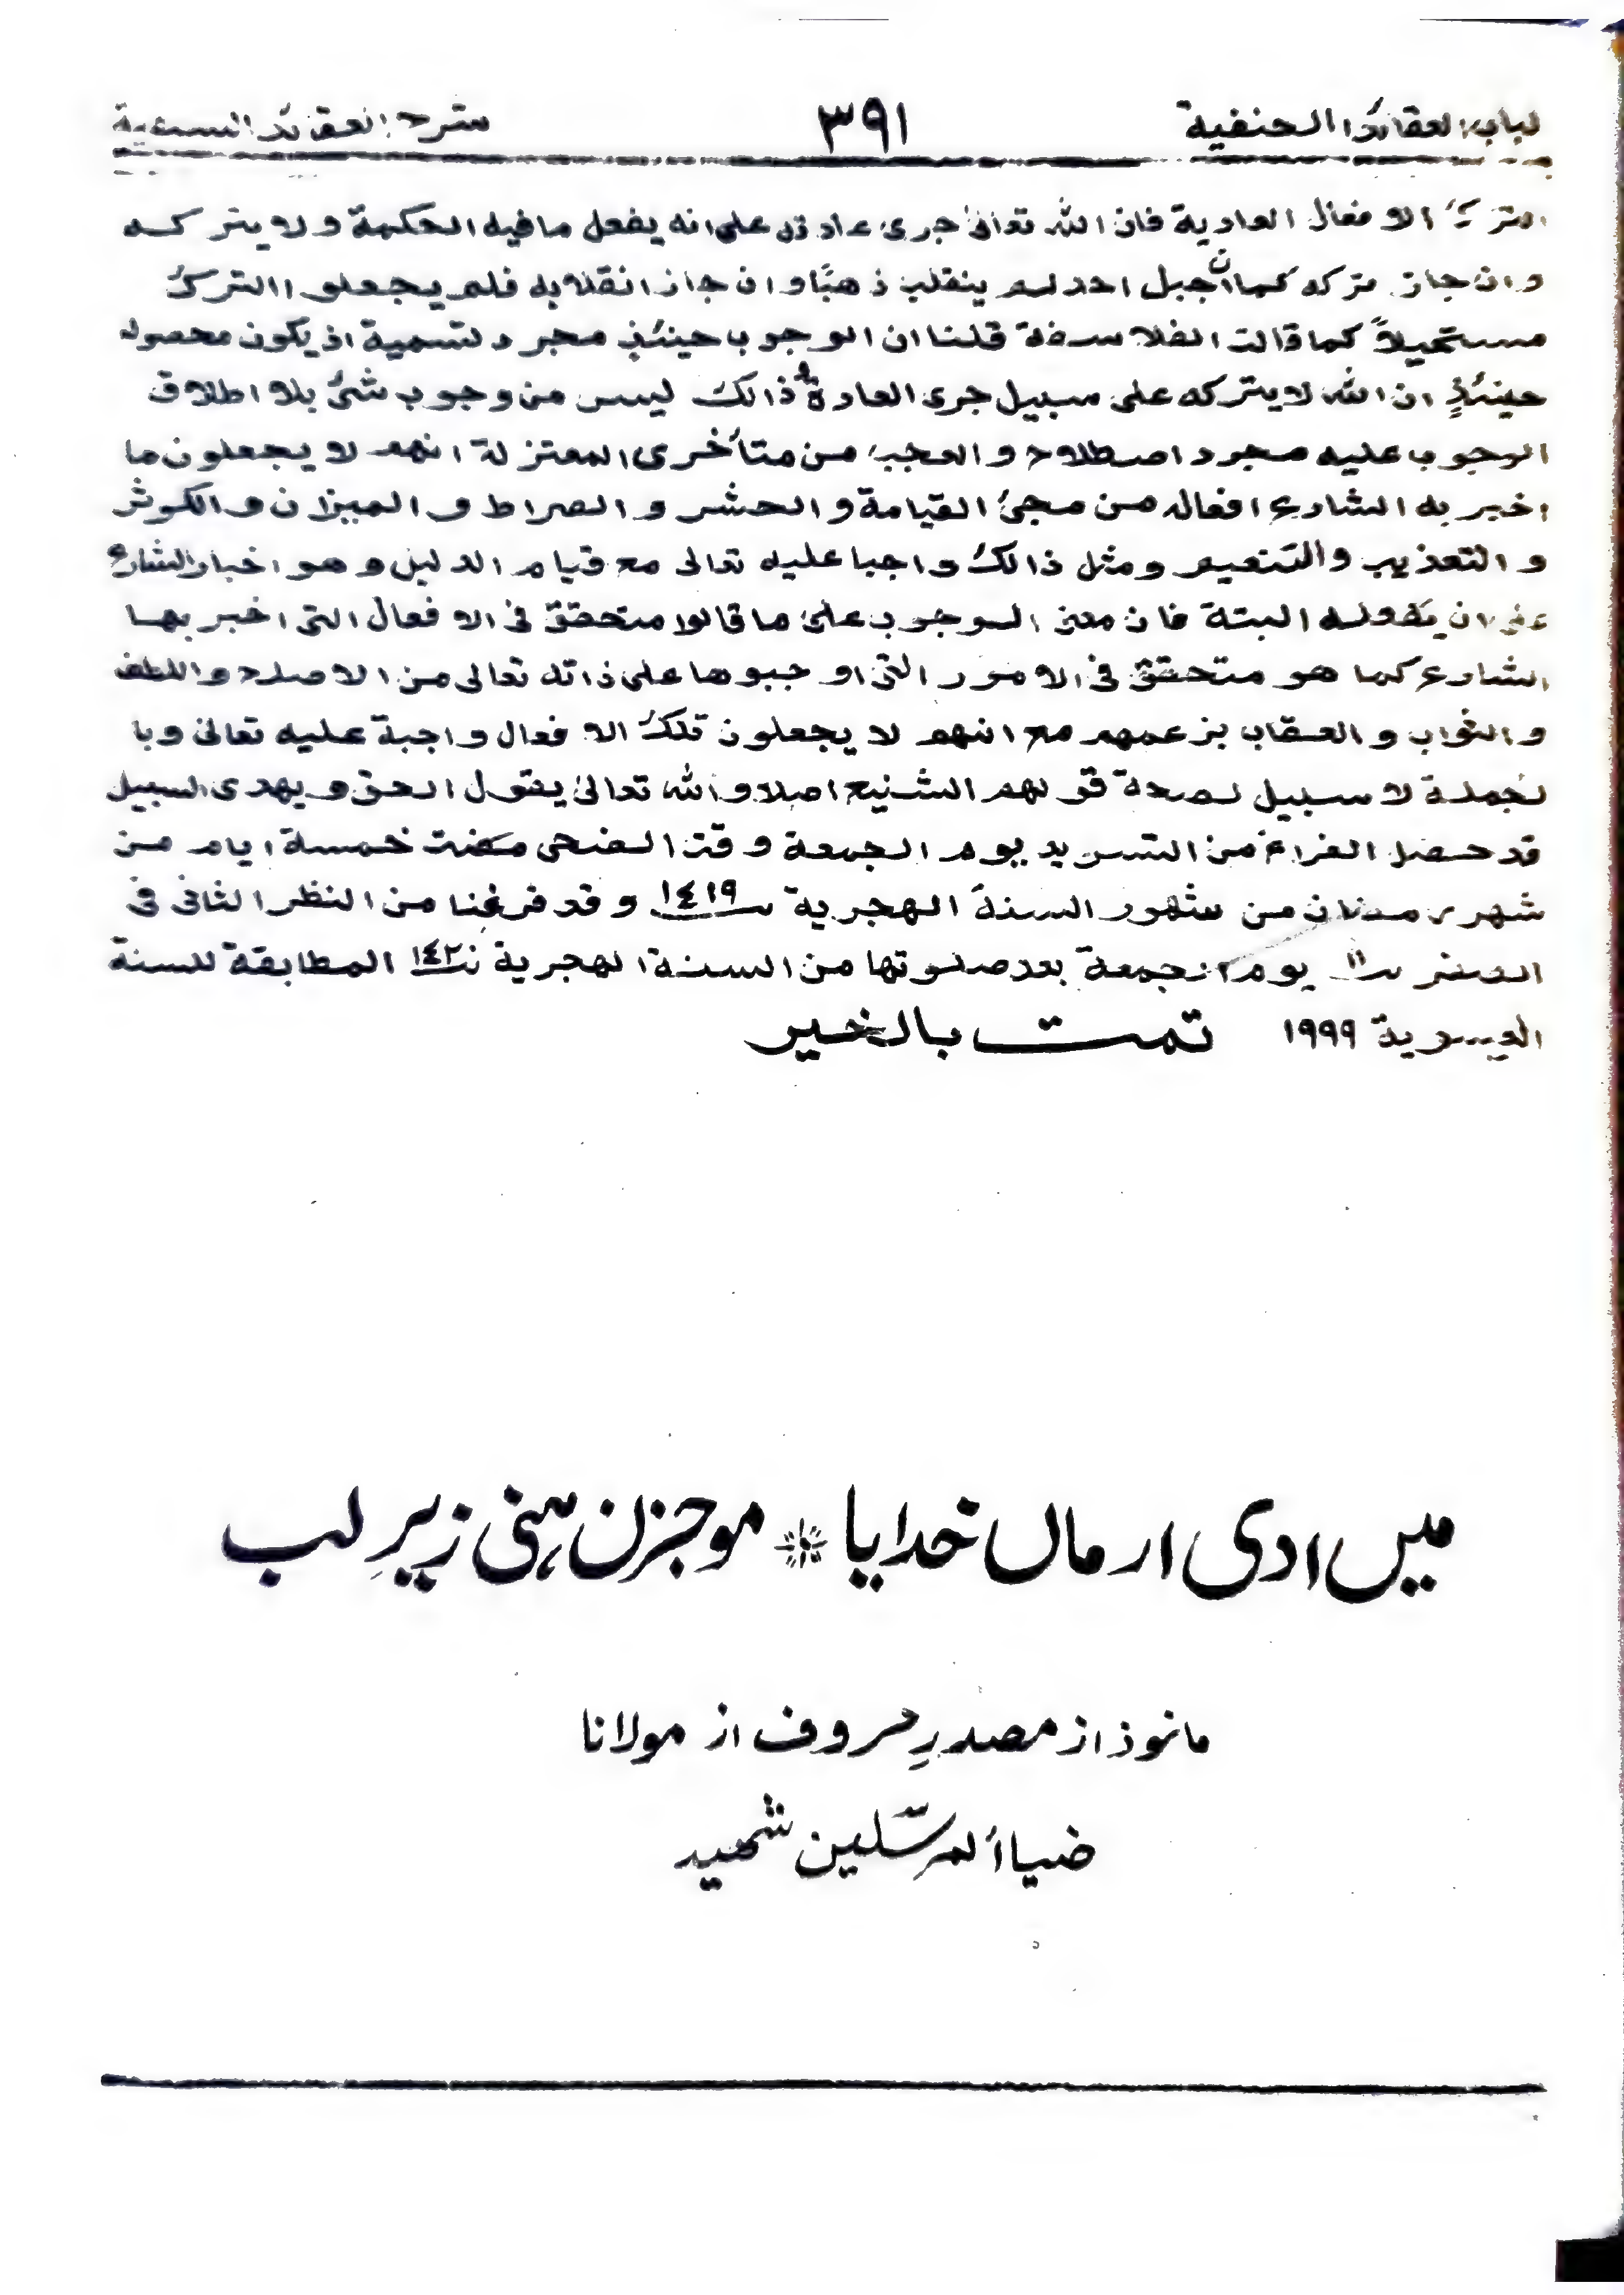 لباب العقائد الحنفية ٣٩١ شرح العقائد النسفية
الترك الافعال العادية فان الله تعالىٰ جرى عادته على انه يفعل ما فيه الحكمة ولا يتركه
وان جاز تركه كما ان جبل احد لم ينقلب ذهبًا وان جاز انقلابه فلم يجعلوا الترك
مستحيلاً كما قالت الفلاسفة قلنا ان الوجوب حينئذٍ مجرد تسمية اذ يكون محصوله
حينئذٍ ان الله لا يتركه على سبيل جرى العادة و ذالك ليس من وجوب شئ بلا اطلاق
الوجوب عليه مجرد اصطلاح والعجب من متأخرى المعتزلة انهم لا يجعلون ما
اخبر به الشارع افعاله من مجئ القيامة والحشر والصراط والميزان والكوثر
والتعذيب والتنعيم ومثل ذالك واجبا عليه تعالى مع قيام الدليل وهو اخبار الشارع
على ان يفعله البتة فان معنى الوجوب علىٰ ما قالوا متحقق فى الافعال التى اخبر بها
الشارع كما هو متحقق فى الامور التى اوجبوها على ذاته تعالى من الاصلح واللطف
والثواب والعقاب بزعمهم مع انهم لا يجعلون تلك الافعال واجبة عليه تعالىٰ وبا
لجملة لا سبيل لصحة قولهم الشنيع اصلا والله تعالىٰ يقول الحق ويهدى السبيل
قد حصل الفراغ من التسويد يوم الجمعة وقت الضحى مضت خمسة ايام من
شهر رمضان من شهور السنة الهجرية ١٤١٩ وقد فرغنا من النظر الثانى فى
الصفر ١١ يوم الجمعة بعد صلوتها من السنة الهجرية ١٤٢٠ المطابقة للسنة
العيسوية ١٩٩٩ تمت بالخير
میں ادی ارماں خدایا * موجزن ہنی زیرِ لب
ماخوذ از مصدرِ حروف از مولانا
ضیاء المرسلین شہید